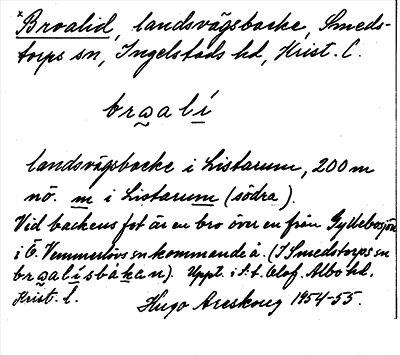 *Broalid, landsvägsbacke, Smeds-
torps sn, Ingelstads hd, Krist. l.
bro̰alí
landsvägsbacke i Listarum, 200 m
nö. m i Listarum (södra).
Vid backens fot är en bro över en från Gyllebosjön
i Ö. Vemmerlövs sn kommande å. (I Smedstorps sn
bro̰alísbákan). Uppt. i s. t. Olof. Albo hd.
Krist. l.
Hugo Areskoug 1954-55.